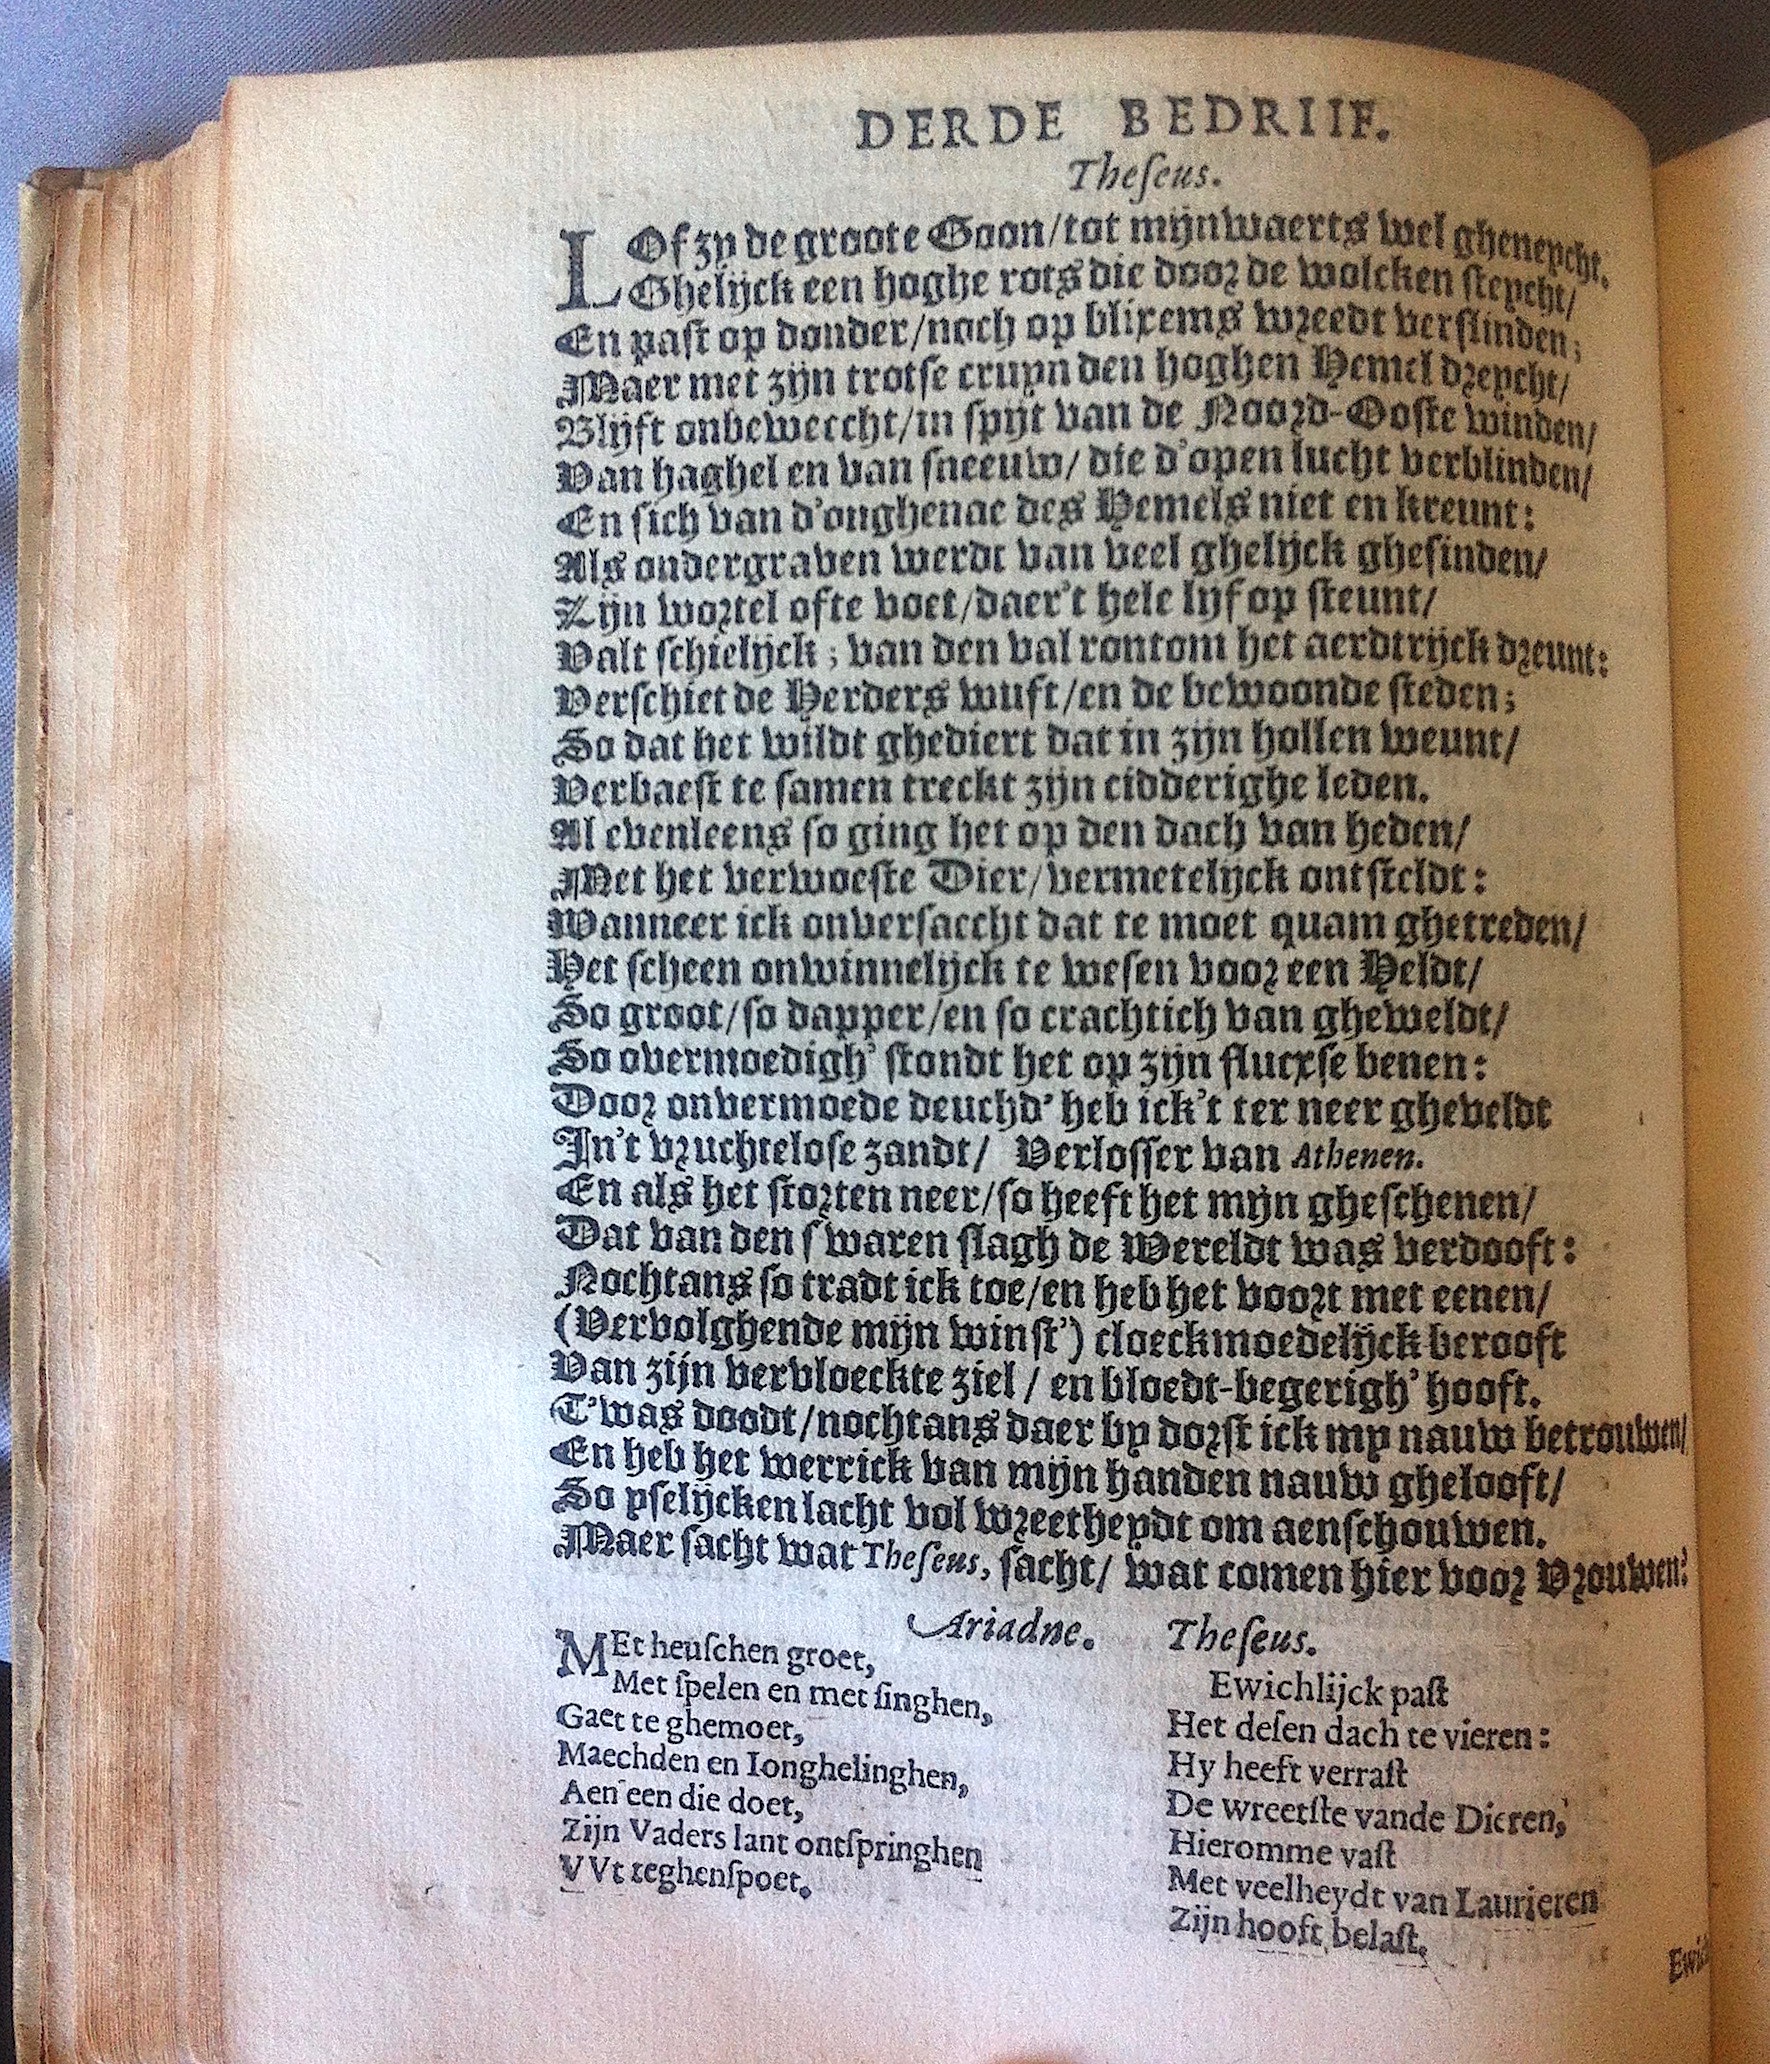 DERDE BEDRIIF.
Theſeus.
LOf zy de groote Goon/tot mijnwaerts wel gheneycht.
Ghelijck een hoghe rots die dooꝛ de wolcken ſteycht/
En paſt op donder/noch op blixems wꝛeedt verſlinden;
Maer met zijn trotſe cruyn den hoghen Hemel dꝛeycht/
Blijft onbeweecht/in ſpijt van de Nooꝛd-Ooſte winden/
Van haghel en van ſneeuw/ die d'open lucht verblinden/
En ſich van d'onghenae des Hemels niet en kreunt:
Als ondergraven werdt van veel ghelijck gheſinden/
Zijn woꝛtel ofte voet/daer't hele lijf op ſteunt/
Valt ſchielijck; van den val rontom het aerdtrijck dꝛeunt:
Verſchiet de Herders wuft/en de bewoonde ſteden;
So dat het wildt ghediert dat in zijn hollen weunt/
Verbaeſt te ſamen treckt zijn cidderighe leden.
Al evenleens ſo ging het op den dach van heden/
Met het verwoeſte Dier/vermetelijck ontſteldt:
Wanneer ick onverſaecht dat te moet quam ghetreden/
Het ſcheen onwinnelijck te weſen vooꝛ een Heldt/
So groot/ſo dapper/en ſo crachtich van gheweldt/
So overmoedigh' ſtondt het op zijn flucxſe benen:
Dooꝛ onvermoede deuchd' heb ick't ter neer gheveldt
In't vꝛuchteloſe zandt/ Verloſſer van Athenen.
En als het ſtoꝛten neer/ſo heeft het mijn gheſchenen/
Dat van den ſwaren ſlagh de Wereldt was verdooft:
Nochtans ſo tradt ick toe/en heb het vooꝛt met eenen/
(Vervolghende mijn winſt') cloeckmoedelijck berooft
Van zijn vervloeckte ziel / en bloedt-begerigh' hooft.
T'was doodt/nochtans daer by doꝛſt ick my nauw betrouwen/
En heb het werrick van mijn handen nauw ghelooft/
So yſelijcken lacht vol wꝛeetheydt om aenſchouwen.
Maer ſacht wat Theſeus, ſacht/ wat comen hier vooꝛ Vꝛouwen?
Ariadne.
MEt heuſchen groet,
Met ſpelen en met ſinghen,
Gaet te ghemoet,
Maechden en Ionghelinghen,
Aen een die doet,
Zijn Vaders lant ontſpringhen
VVt teghenſpoet.
Theſeus.
Ewichlijck paſt
Het deſen dach te vieren:
Hy heeft verraſt
De wreetſte vande Dieren,
Hieromme vaſt
Met veelheydt van Laurieren
Zijn hooft belaſt.